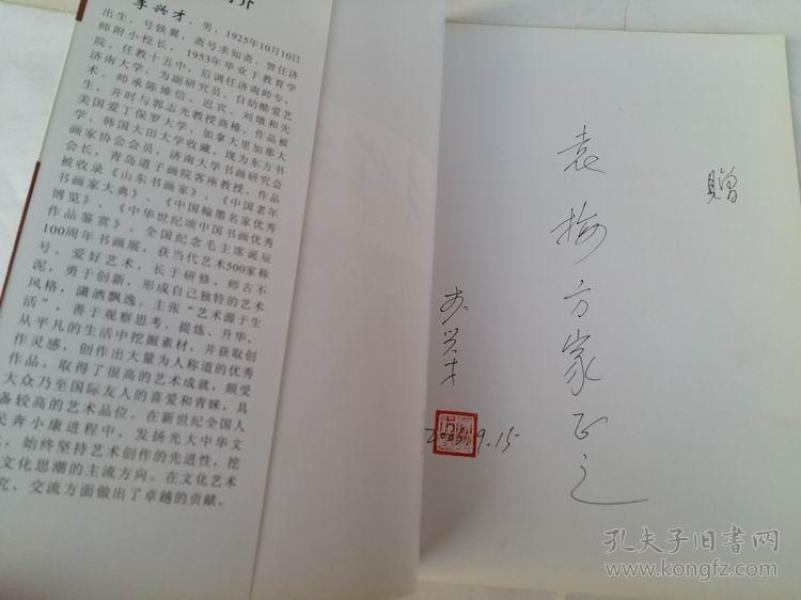 李兴才，男，1925年10月10日
出生，号铁翼，斋号求知斋，曾任济
师附小校长，1953年毕业于教育学
院，任教十五中，后调任济南师专，
济南大学，为副研究员，自幼酷爱艺
术，师承陈维信、迟宾、刘墩和先
生，并时与郭志光教授商榷，作品被
美国爱丁保罗大学，加拿大里加那大
学，韩国大田大学收藏，现为东方书
画家协会会员，济南大学书画研究会
会长，青岛道子画院客座教授，作品
被收录《山东书画家》、《中国老年
书画家大典》、《中国翰墨名家优秀
博览》、《中华世纪颂中国书画优秀
作品鉴赏》，全国纪念毛主席诞辰
100周年书画展，获当代艺术500家称
号，爱好艺术，长于研修，师古不
泥，勇于创新，形成自己独特的艺术
风格，潇洒飘逸，主张“艺术源于生
活”，善于观察思考、提炼、升华，
从平凡的生活中挖掘素材，并获取创
作灵感，创作出大量为人称道的优秀
作品，取得了很高的艺术成就，颇受
大众乃至国际友人的喜爱和青睐，具
备较高的艺术品位。在新世纪全国人
民奔小康进程中，发扬光大中华文
，始终坚持艺术创作的先进性，挖
文化思潮的主流方向。在文化艺术
究、交流方面做出了卓越的贡献。
赠
袁梅方家正之
李兴才
9.15
孔夫子旧书网
www.kongfz.com